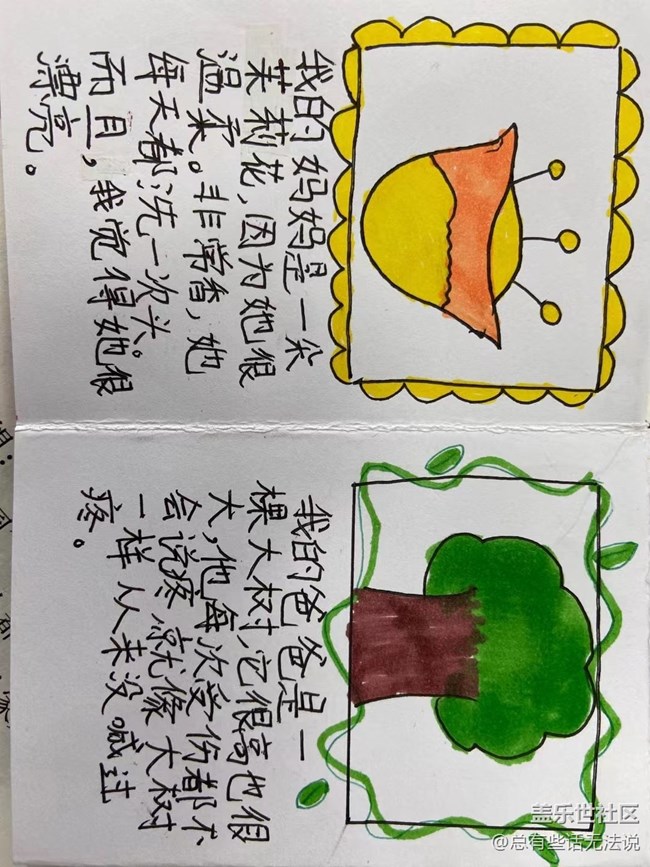 我的妈妈是一朵
茉莉花,因为她很
温柔。非常香,她
每天都洗一次头。
而且,我觉得她很
漂亮。
我的爸爸是一
棵大树,它很高也很
大,他每次受伤都不
会说疼就像大树
一样从来没喊过
疼。
盖乐世社区
@总有些话无法说